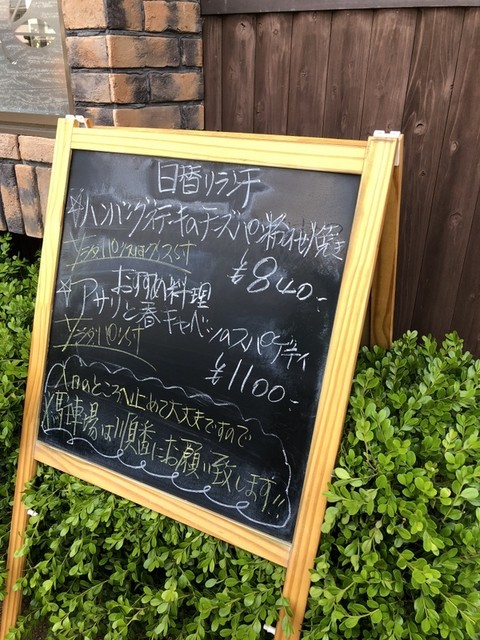 日替りランチ
☆ハンバーグステーキのチーズパン粉のせ焼き
サラダパンorライス付
¥840-
おすすめ料理
☆アサリと春キャベツのスパゲティ
サラダ・パン付
¥1100-
入口のところへ止めて大丈夫ですので
駐車場は順番にお願い致します!!